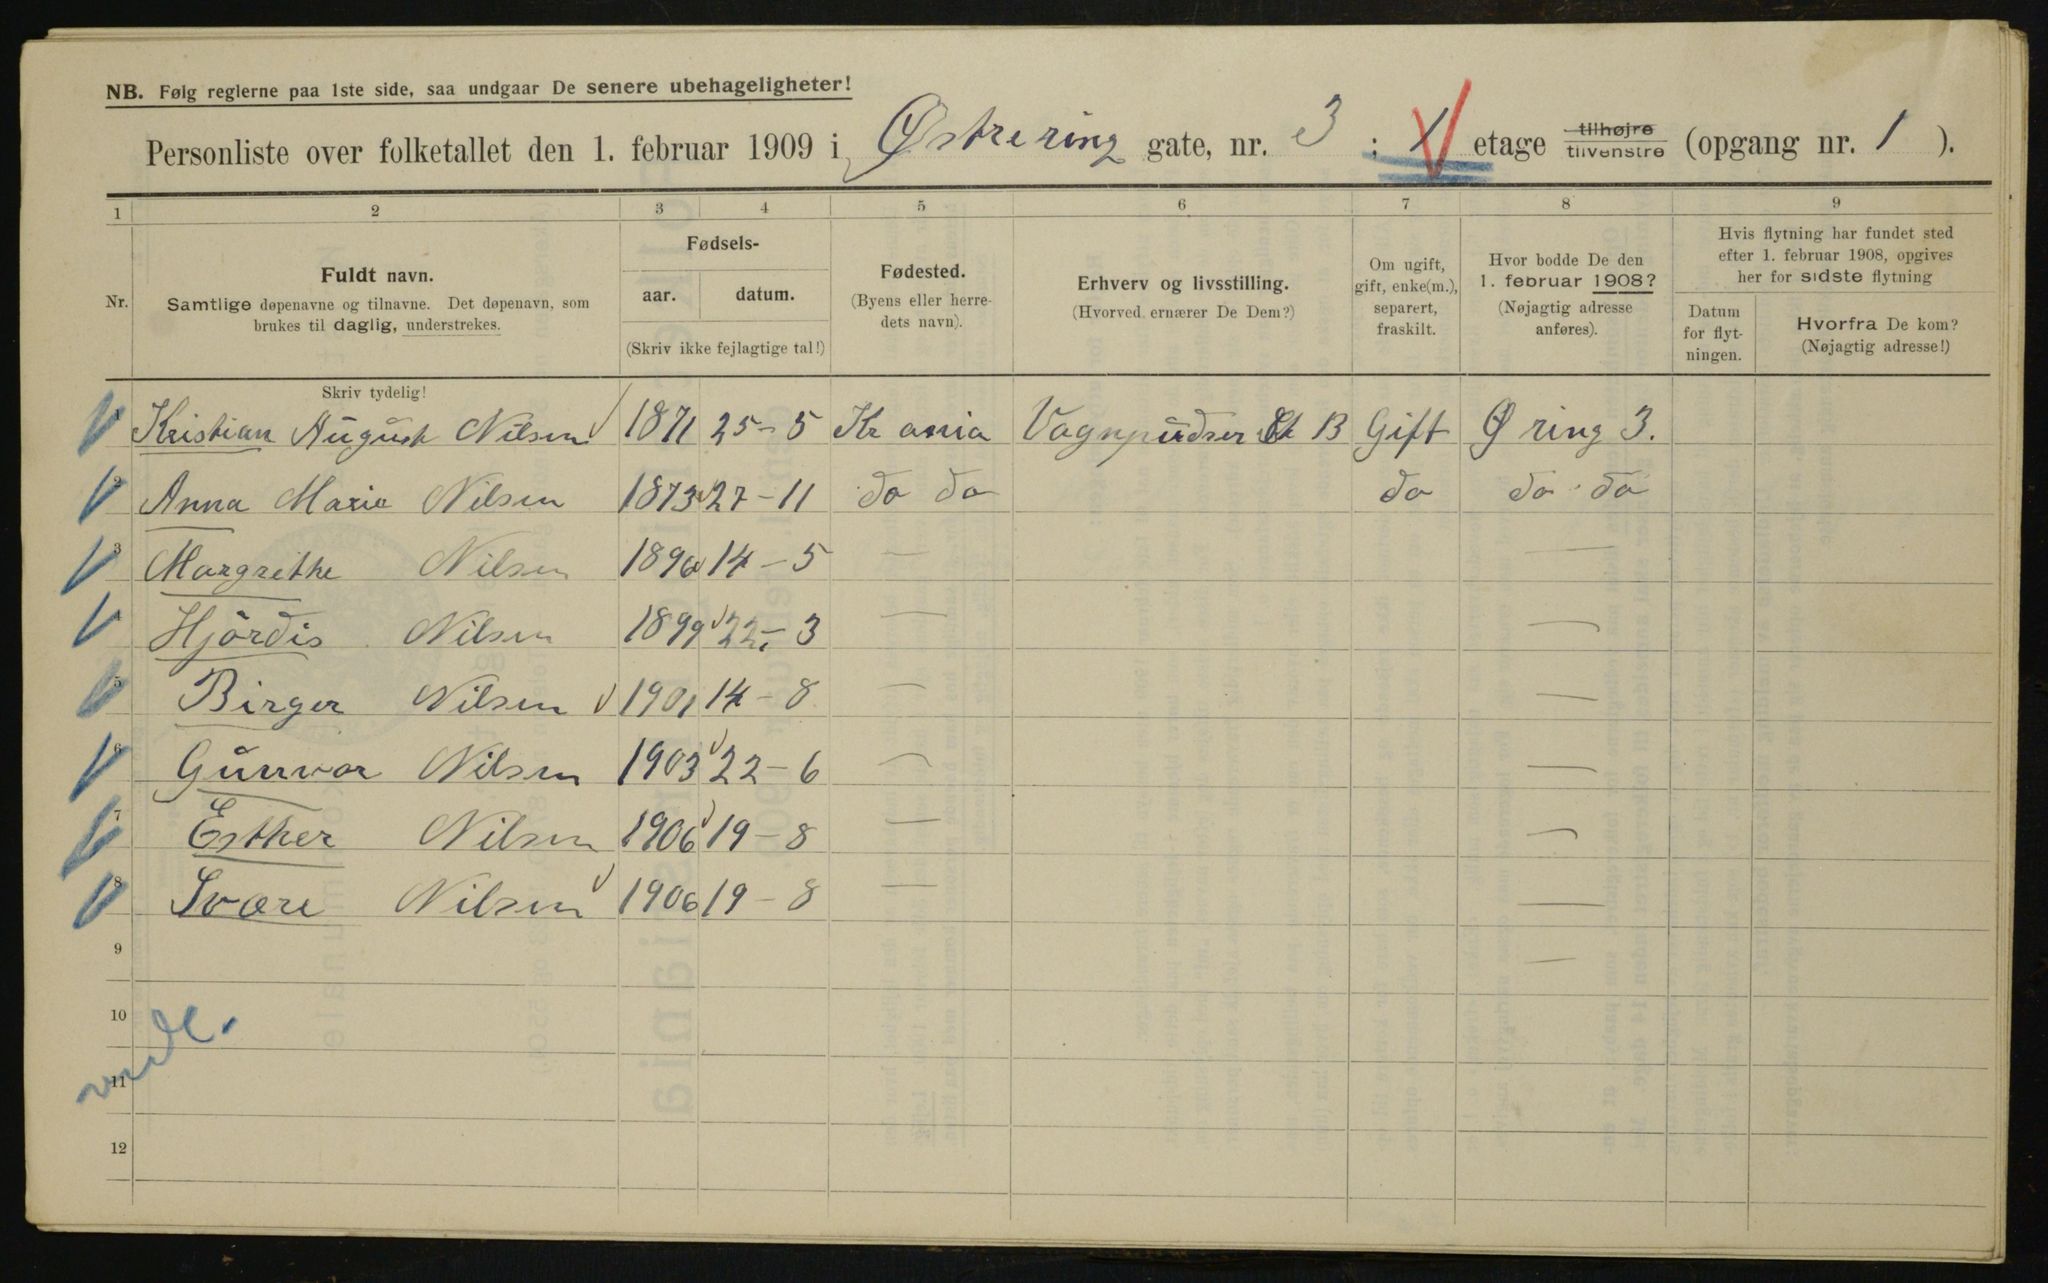 NB. Følg reglerne paa 1ste side, saa undgaar De senere ubehageligheter!
Personliste over folketallet den 1. februar 1909 i Østre ring gate, nr. 3 : V etage tilhøjre tilvenstre (opgang nr. 1 ).
1 2 3 4 5 6 7 8 9
Nr.
Fuldt navn.
Samtlige døpenavne og tilnavne. Det døpenavn, som
brukes til daglig, understrekes.
Skriv tydelig!
Fødsels-
aar. datum.
(Skriv ikke fejlagtige tal!)
Fødested.
(Byens eller herre-
dets navn).
Erhverv og livsstilling.
(Hvorved ernærer De Dem?)
Om ugift,
gift, enke(m.),
separert,
fraskilt.
Hvor bodde De den
1. februar 1908?
(Nøjagtig adresse
anføres).
Hvis flytning har fundet sted
efter 1. februar 1908, opgives
her for sidste flytning
Datum
for flyt-
ningen.
Hvorfra De kom?
(Nøjagtig adresse!)
1 Kristian August Nilsen 1871 25-5 Kr ania Vognpudser B Gift Ø ring 3.
2 Anna Marie Nilsen 1873 27-11 do do do do do
3 Margrethe Nilsen 1896 14-5 — —
Hjördis Nilsen 1899 22-3 — —
5 Birger Nilsen 1901 14-8 — —
6 Gunvor Nilsen 1903 22-6 — —
7 Esther Nilsen 1906 19-8 — —
8 Svære Nilsen 1906 19-8 — —
9 —
10
11
12